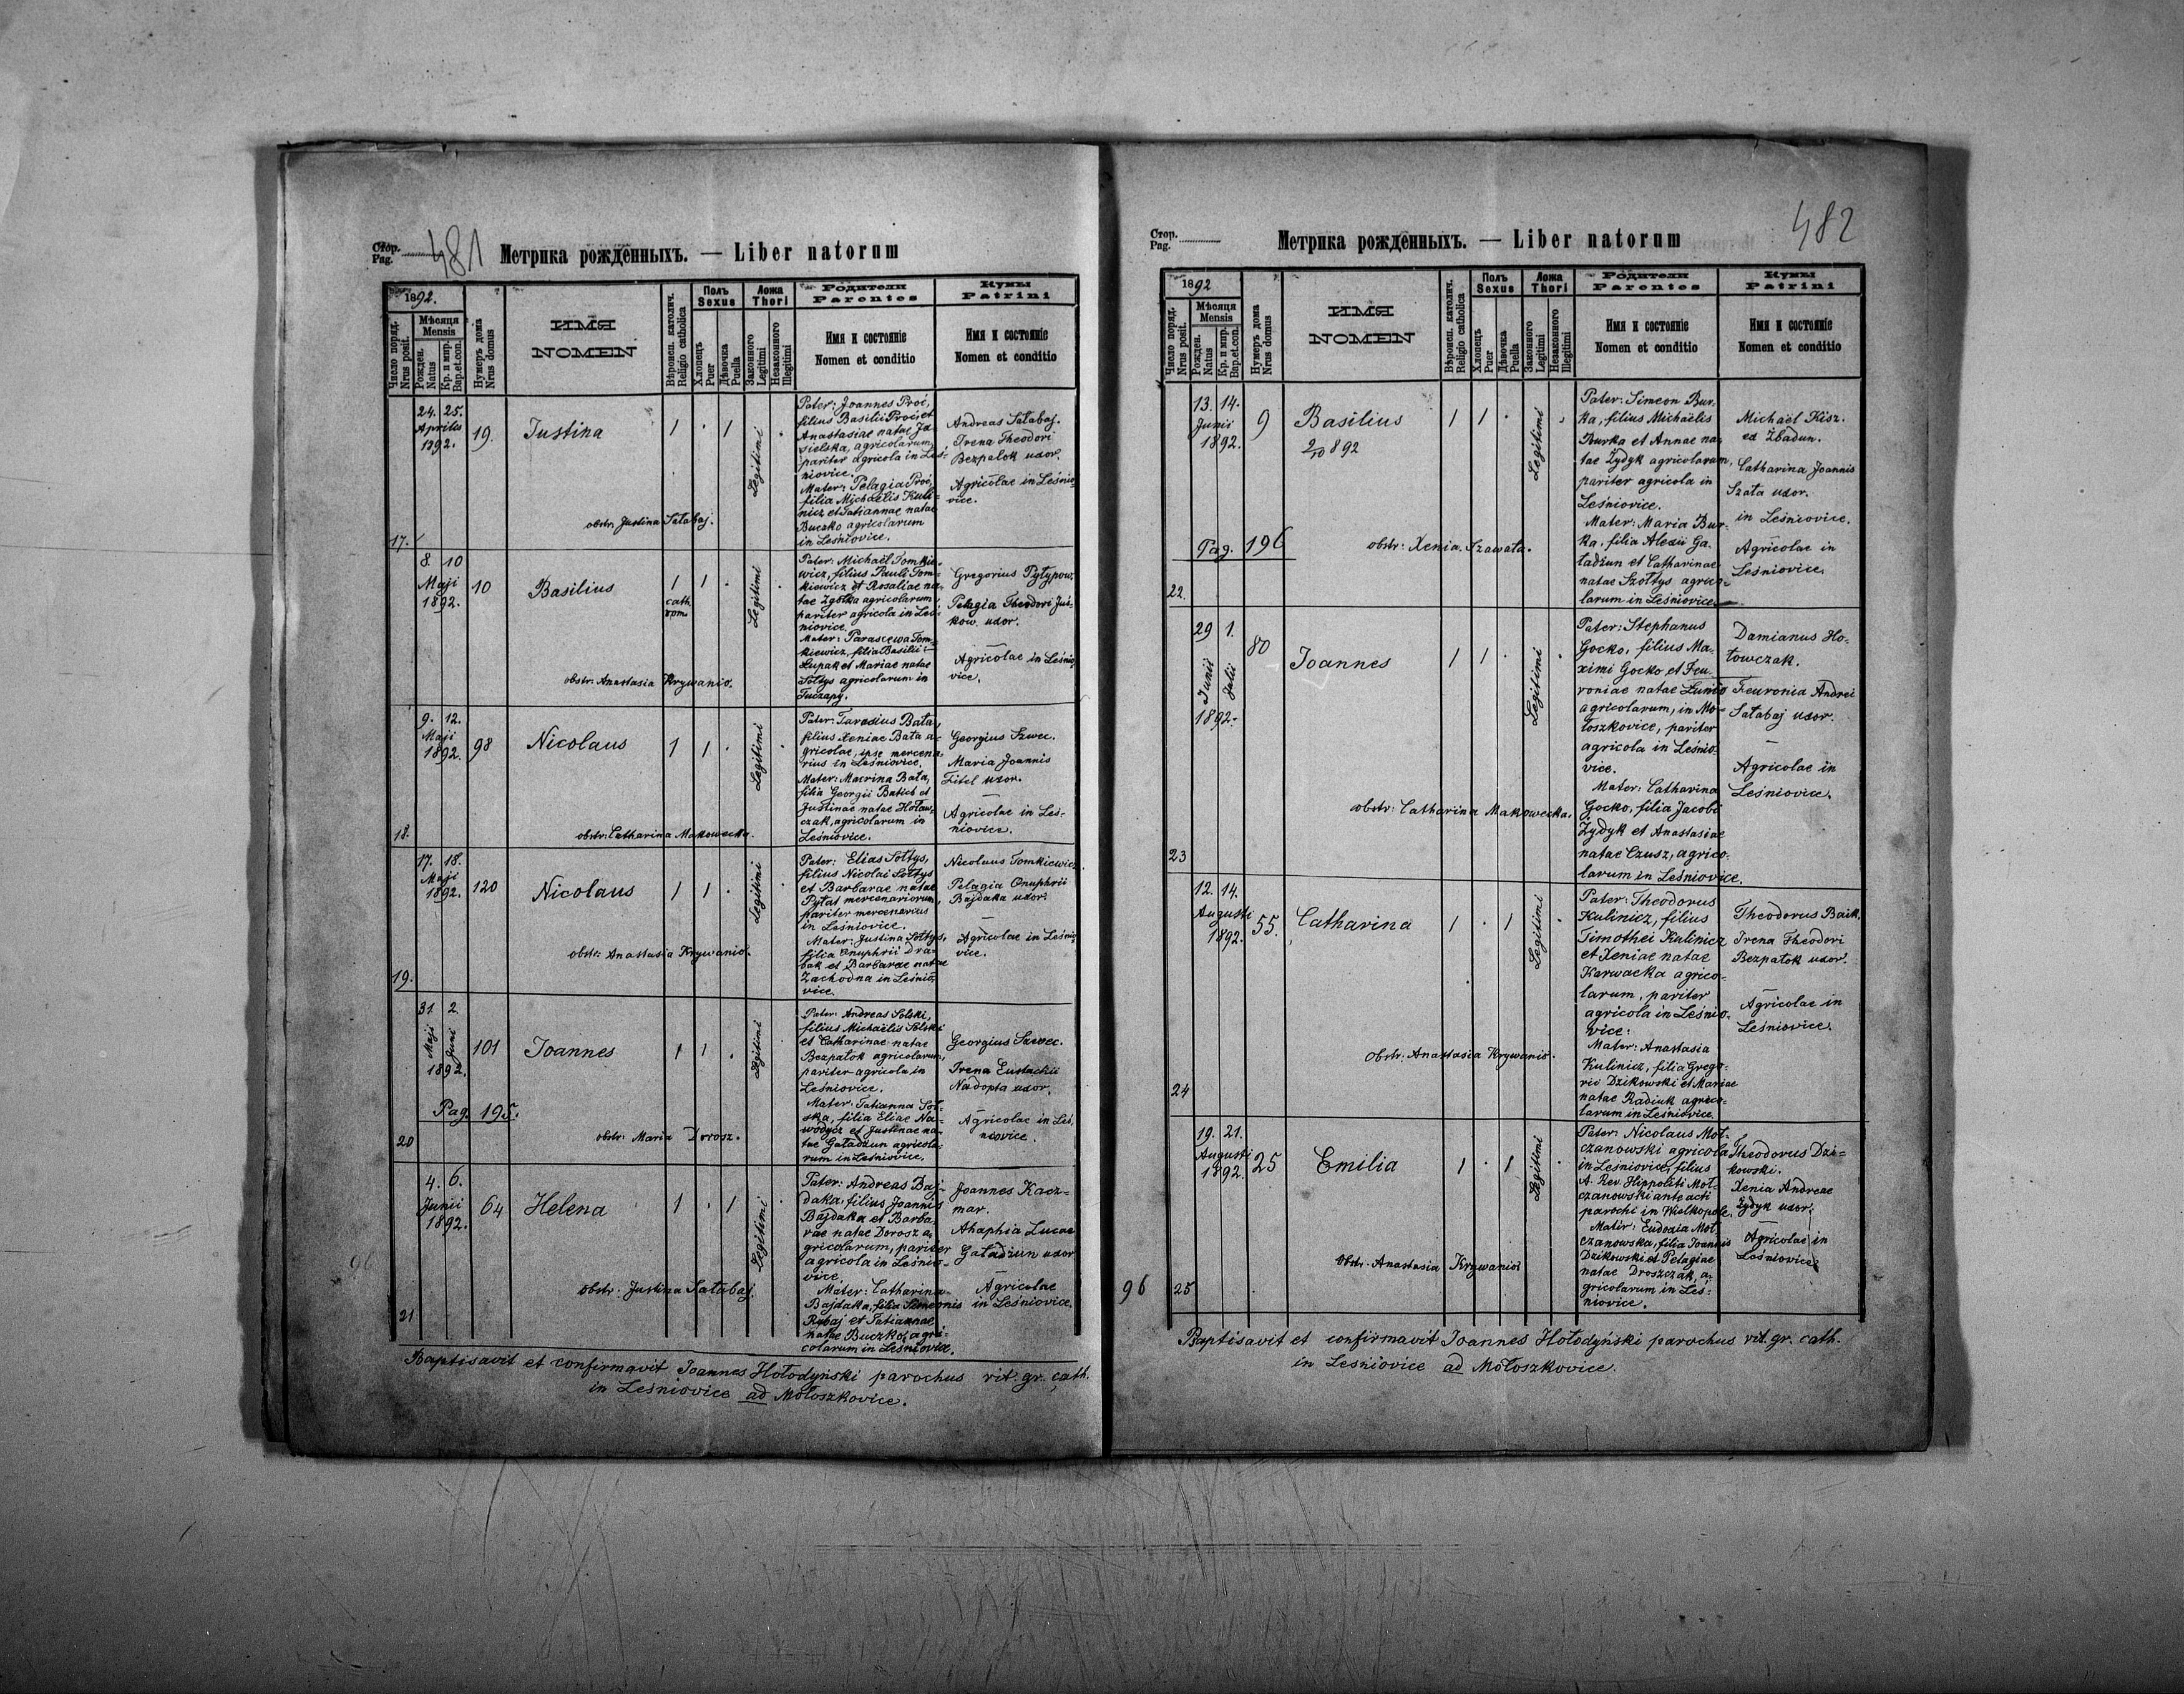 Стор.
Pag. 481 Метрика рожденныхъ. — Liber natorum
1892.
Число поряд.
Nrus posit.
Мѣсяця
Mensis
Рожден.
Natus
Кр. и мѵр.
Bap. et con.
Нумеръ дома
Nrus domus
ИМЯ
NOMEN
Вѣроисп. католич.
Religio catholica
Полъ
Sexus
Хлопецъ
Puer
Дѣвочка
Puella
Ложа
Thori
Законного
Legitimi
Незаконного
Illegitimi
Родители
Parentes
Имя и состоянiе
Nomen et conditio
Кумы
Patrini
Имя и состоянiе
Nomen et conditio
17.
24. 25.
Aprilis
1892.
19.
Justina
1 . 1
Legitimi
Pater: Joannes Proć,
filius Basilii Proć, et
Anastasiae natae Ja
sielska, agricolarum,
pariter agricola in Leś-
niovice.
Mater: Pelagia Proć,
filia Michaëlis Kuli-
nicz et Tatiannae natae
Buczko agricolarum
in Leśniovice.
Andreas Sałabaj.
Irena Theodori
Bezpalok uxor.
Agricolae in Leśnio
vice.
obstr. Justina Sałabaj.
8. 10
Maji
1892.
10
Basilius
1 1 .
cath.
rom.
Legitimi
Pater: Michaël Tomkie-
wicz, filius Pauli Tom-
kiewicz et Rosaliae na-
tae Zgółka agricolarum,
pariter agricola in Leś-
niovice.
Mater: Parascewa Tom-
kiewicz, filia Basilii
Łupak et Mariae natae
Sołtys agricolarum in
Tuczapy.
Gregorius Pyłypow.
Pelagia Theodori Juś-
kow. uxor.
Agricolae in Leśnio
vice.
obstr: Anastasia Krywanio.
18.
9. 12.
Maji
1892.
98
Nicolaus
1 1 .
Legitimi
Pater: Tarasius Bata,
filius Xeniae Bata a-
gricolae, ipse mercena
rius in Leśniovice.
Mater: Macrina Bata,
filia Georgii Batich et
Justinae natae Hoław-
czak, agricolarum in
Leśniovice.
Georgius Szwec.
Maria Joannis
Fitel uxor.
Agricolae in Leś-
niovice.
obstr: Catharina Makowecka.
19.
17. 18.
Maji
1892.
120
Nicolaus
1 1 .
Legitimi
Pater: Elias Sołtys,
filius Nicolai Sołtys
et Barbarae natae
Pyłat mercenariorum,
pariter mercenarius
in Leśniovice.
Mater: Justina Sołtys,
filia Onuphrii Dra-
bak et Barbarae natae
Zachodna in Leśnio
vice.
Nicolaus Tomkiewicz
Pelagia Onuphrii
Bajdaka uxor.
Agricolae in Leśnio
vice.
obstr: Anastasia Krywanio.
20
31 2.
Maji Juni
1892.
101
Joannes
1 1 .
Legitimi
Pater: Andreas Solski,
filius Michaëlis Solski
et Catharinae natae
Bezpałok agricolarum,
pariter agricola in
Leśniovice.
Mater: Tatianna Sol-
ska, filia Eliae Na-
wodycz et Justinae na-
tae Gaładzun agricola-
rum in Leśniovice.
Georgius Szwec.
Irena Eustachii
Nadopta uxor.
Agricolae in Leś.
niovice.
Pag. 195.
obstr: Maria Dorosz.
21
4. 6.
Junii
1892.
64
Helena
1 . 1
Legitimi
Pater: Andreas Baj-
daka, filius Joannis
Bajdaka et Barba-
rae natae Dorosz a-
gricolarum, pariter
agricola in Leśnio-
vice.
Mater: Catharina
Bajdaka, filia Simeonis
Rybaj et Tatiannae
natae Buczko, agri-
colarum in Leśniovice.
Joannes Kacz-
mar.
Ahaphia Lucae
Gaładzun uxor
Agricolae
in Leśniovice.
obstr: Justina Sałabaj.
Baptisavit et confirmavit Joannes Hołodyński parochus rit. gr. cath.
in Leśniovice ad Mołoszkovice.
Стор.
Pag.
Метрика рожденныхъ. — Liber natorum
482
1892
Число поряд.
Nrus posit.
Мѣсяця
Mensis
Рожден.
Natus
Кр. и мѵр.
Bap. et con.
Нумеръ дома
Nrus domus
ИМЯ
NOMEN
Вѣроисп. католич.
Religio catholica
Полъ
Sexus
Хлопецъ
Puer
Дѣвочка
Puella
Ложа
Thori
Законного
Legitimi
Незаконного
Illegitimi
Родители
Parentes
Имя и состоянiе
Nomen et conditio
Кумы
Patrini
Имя и состоянiе
Nomen et conditio
22.
13. 14.
Junii
1892.
9
Basilius
2/10 892
1 1 .
Legitimi
Pater: Simeon Bur-
ka, filius Michaëlis
Burka et Annae na-
tae Żydyk agricolarum,
pariter agricola in
Leśniovice.
Mater: Maria Bur-
ka, filia Alexii Ga-
ładzun et Catharinae
natae Szołtys agrico-
larum in Leśniovice.
Michaël Kisz.
ex Żbadun.
Catharina Joannis
Szata uxor.
in Leśniovice.
Agricolae in
Leśniovice.
Pag. 196
obstr: Xenia Szawała.
23
29 1.
Junii Julii
1892.
80
Joannes
1 1 .
Legitimi
Pater: Stephanus
Gocko, filius Ma-
ximi Gocko et Feu-
roniae natae Łunio
agricolarum, in Mo-
łoszkovice, pariter
agricola in Leśnio-
vice.
Mater: Catharina
Gocko, filia Jacobi
Żydyk et Anastasiae
natae Czusz, agrico-
larum in Leśniovice.
Damianus Ho-
łowczak.
Feuronia Andrei
Sałabaj uxor.
Agricolae in
Leśniovice.
obstr: Catharina Makowecka.
24
12. 14.
Augusti
1892.
55.
Catharina
1 . 1
Legitimi
Pater: Theodorus
Kulinicz, filius
Timothei Kulinicz
et Xeniae natae
Karwacka agrico-
larum, pariter
agricola in Leśnio-
vice.
Mater: Anastasia
Kulinicz, filia Grego-
rii Dzikowski et Mariae
natae Radiuk agrico-
larum in Leśniovice.
Theodorus Baik.
Irena Theodori
Bezpałok uxor.
Agricolae in
Leśniovice.
obstr: Anastasia Krywanio.
96
25
19. 21.
Augusti
1892.
25
Emilia
1 . 1
Legitimi
Pater: Nicolaus Moł-
czanowski agricola
in Leśniovice, filius
A. Rev. Hippoliti Moł-
czanowski ante acti
parochi in Wielkopole.
Mater: Eudoxia Moł-
czanowska, filia Joannis
Dzikowski et Pelagiae
natae Droszczak, a-
gricolarum in Leś-
niovice.
Theodorus Dzi-
kowski.
Xenia Andreae
Żydyk uxor.
Agricolae in
Leśniovice.
obstr. Anastasia Krywanio
Baptisavit et confirmavit Joannes Hołodyński parochus rit. gr. cath.
in Leśniovice ad Mołoszkovice.